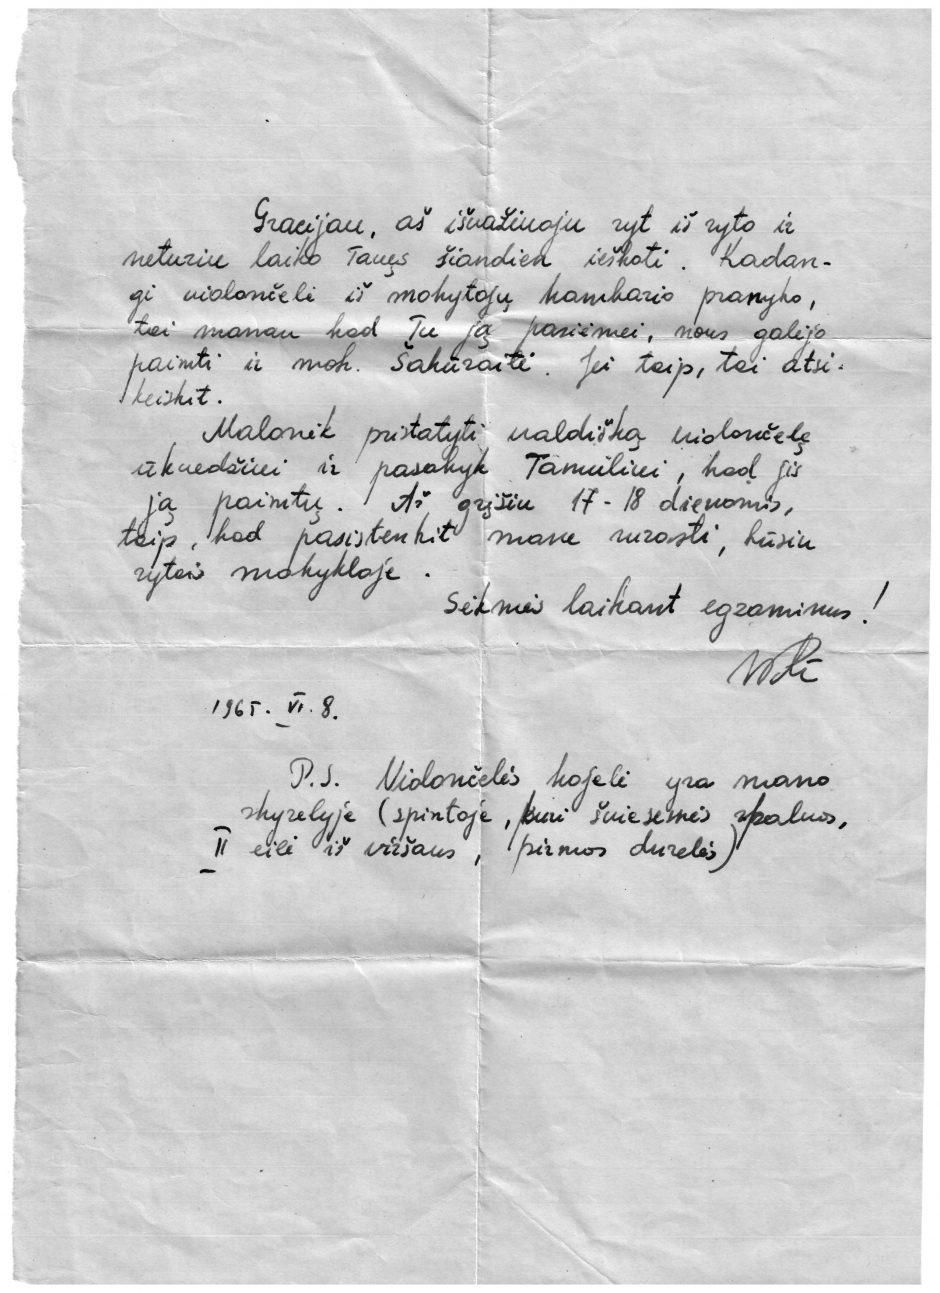 Gracijau, aš išvažiuoju ryt iš ryto ir
neturiu laiko Tavęs šiandien ieškoti. Kadan-
gi violončelė iš mokytojų kambario pranyko,
tai manau kad Tu ją pasiėmei, nors galėjo
paimti ir mok. Šakūraitė. Jei taip, tai atsi-
keiskit.
Malonėk pristatyti valdišką violončelę
ūkvedžiui ir pasakyk Tamuliui, kad jis
ją paimtų. Aš grįšiu 17-18 dienomis,
taip, kad pasistenkit mane surasti, būsiu
rytais mokykloje.
Sėkmės laikant egzaminus!
1965. VI. 8.
P.S. Violončelės kojelė yra mano
skyrelyje (spintoje, kuri šviesesnės spalvos,
II eilė iš viršaus, pirmos durelės)